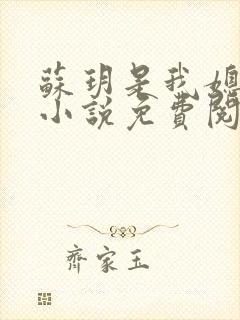 蘇玥是我媳
小說免費閱
齊家玉